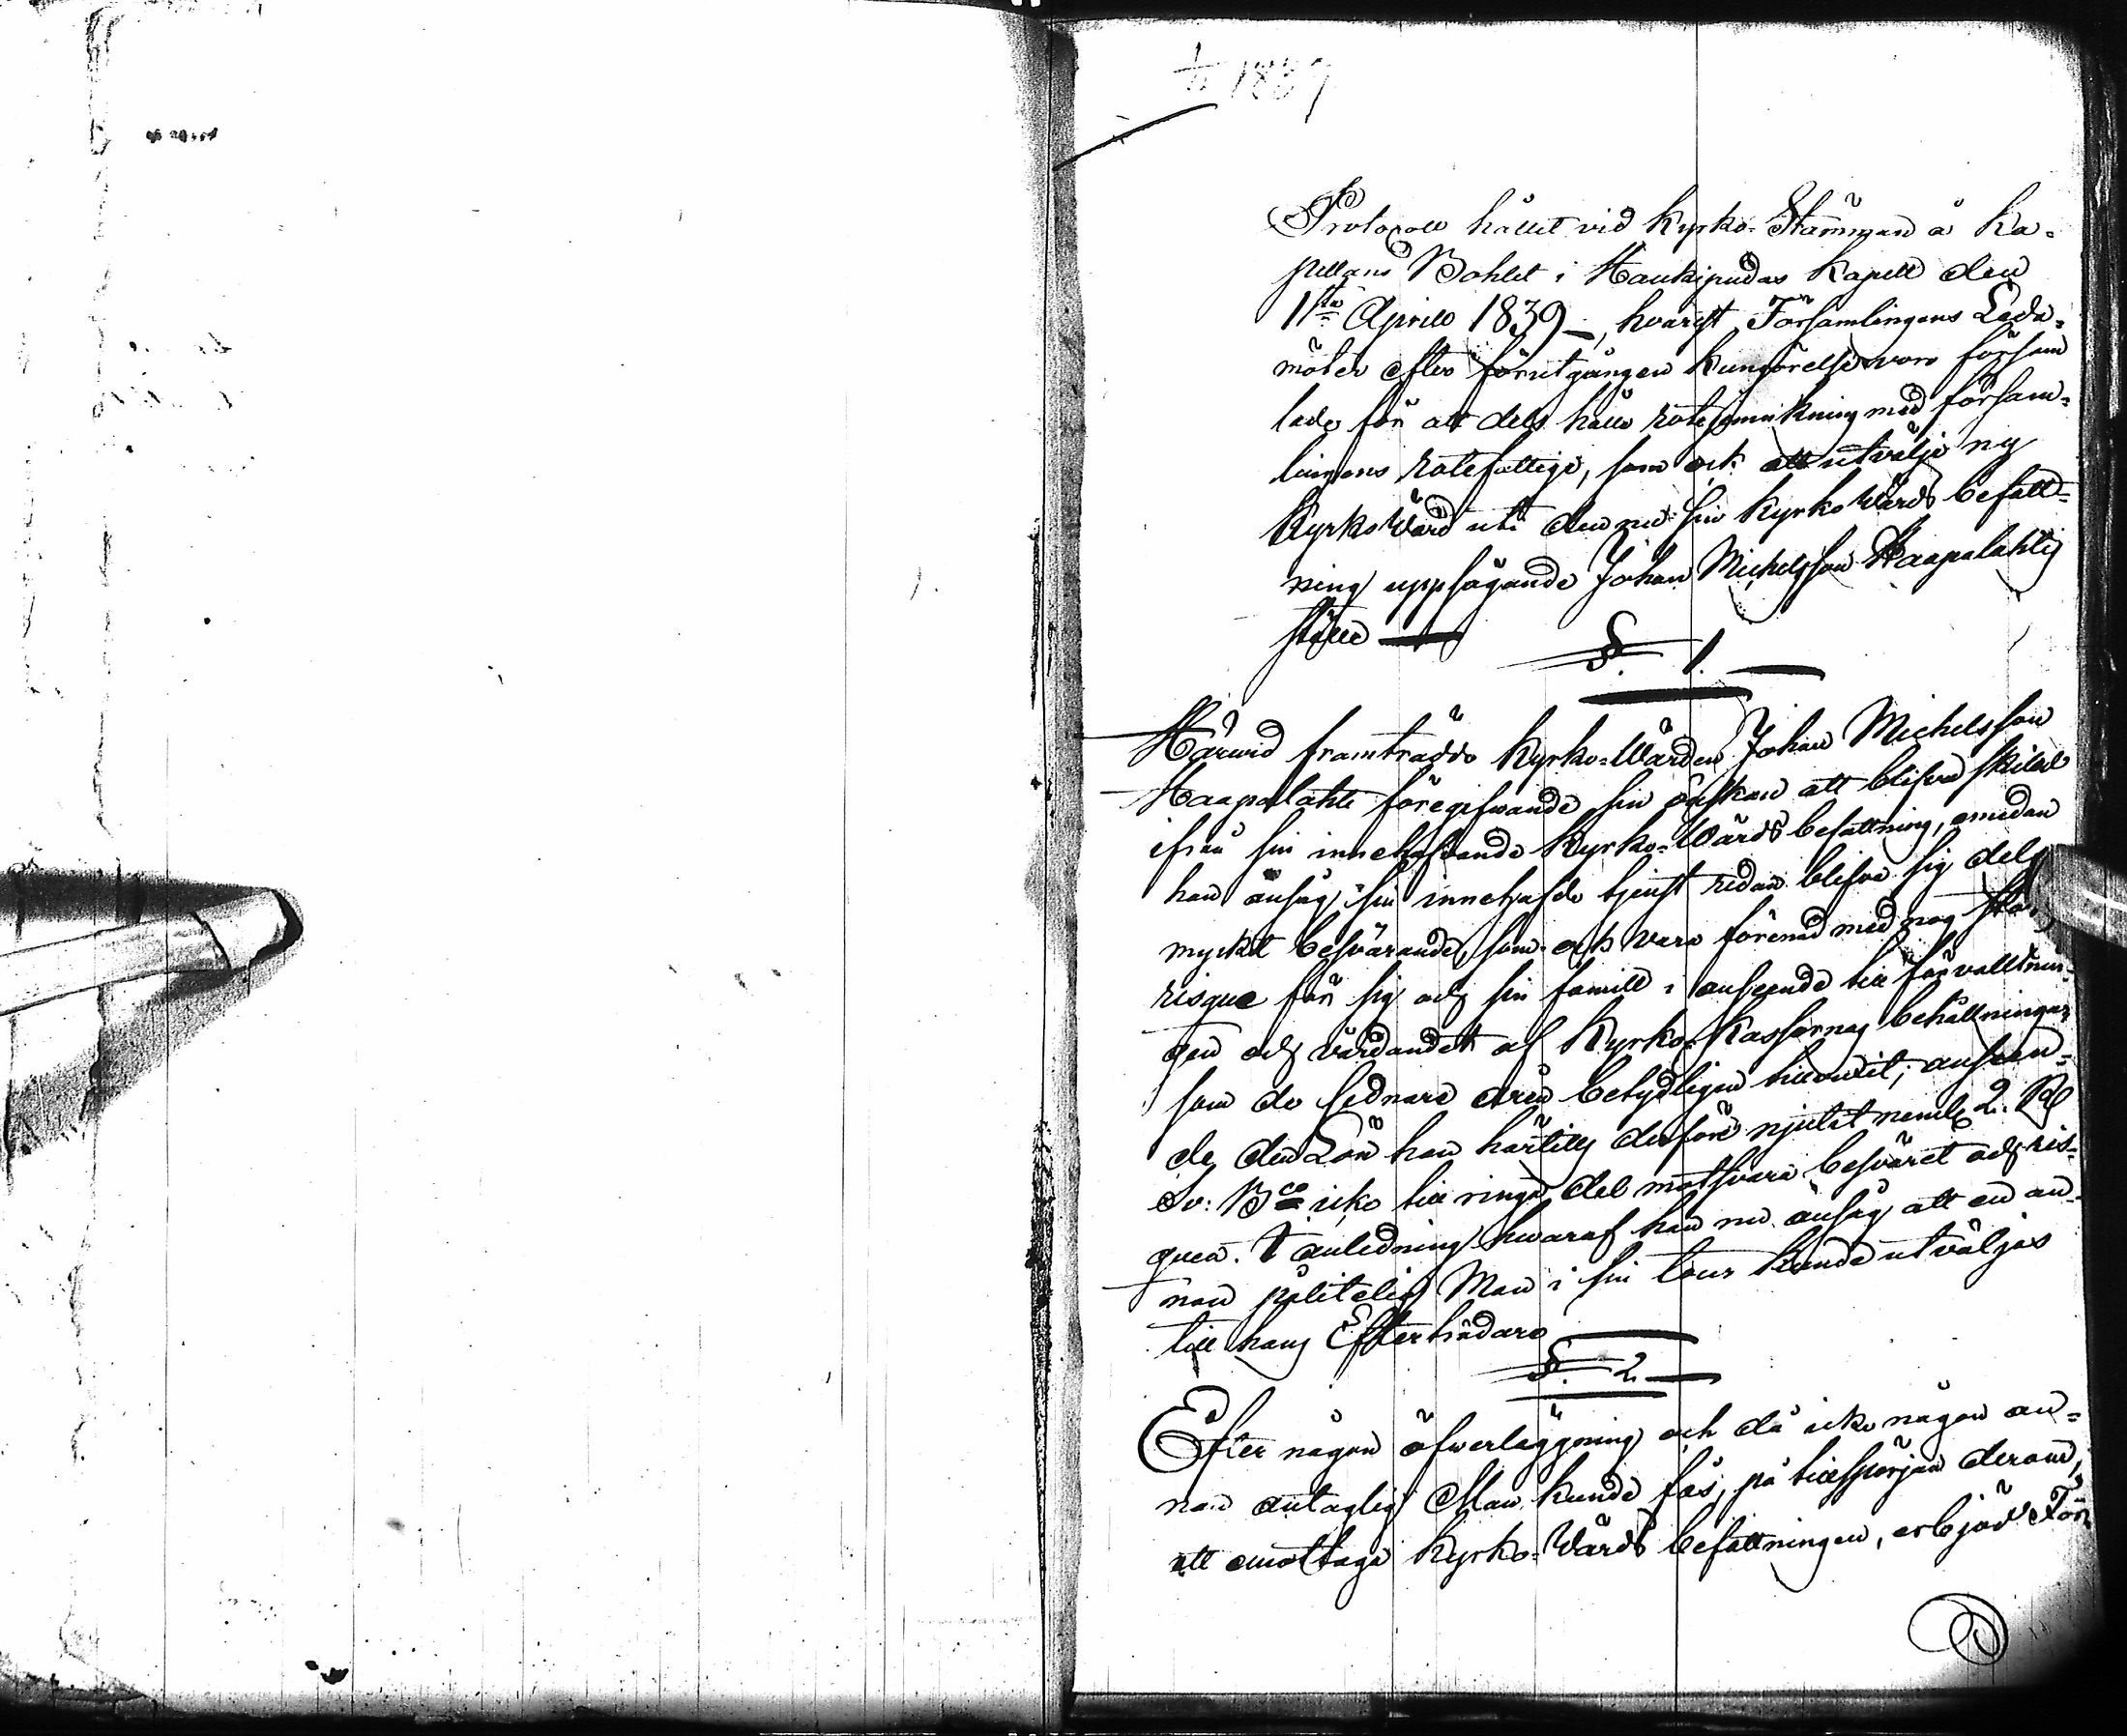 1839
Protocoll hållit vid Kyrko-Stämman å Ka-
pellans Bohlet i Haukipudas Kapell den
1sta Aprill 1839, hvarest Församlingens Leda-
möter efter förutgången kungörelse voro försam
lade för att dels hålla rotejemnkning med försam-
lingens rotefattige, som ock att utvälja ny
KyrkoVärd uti den nu sin KyrkoVärds befatt-
ning uppsägande Johan Michelsson Haapalahtis
ställe
§. 1.
Härwid framträdde Kyrko-Wärden Johan Michelsson
Haapalahti föregifwande sin önskan att blifva skild
ifrån sin innehafvande Kyrko-Wärds befattning, emedan
han ansåg sin innehafde tjenst redan blifva sig dels
mycket besvärande, som och vara förenad med nog stor
risque för sig och sin famille i anseende till förvalltnin-
gen och vårdandet af Kyrko-Kassornas behållningar,
som de sednare åren betydligen tillvuxit; ansen-
de den Lön han härtills derföre njutit neml. 2 R
Sv: Bco icke till ringa del motsvara besväret och ris-
quen. I anledning hwaraf han nu ansåg att en an-
nan pålitelig Man i sin tour kunde utväljas
till hans Efterträdare
§. 2.
Efter någon öfwerläggning och då icke någon an-
nan antaglig Man kunde fås, på tillspörjan derom,
att emottaga Kyrko-Värds befattningen, erbjöd För